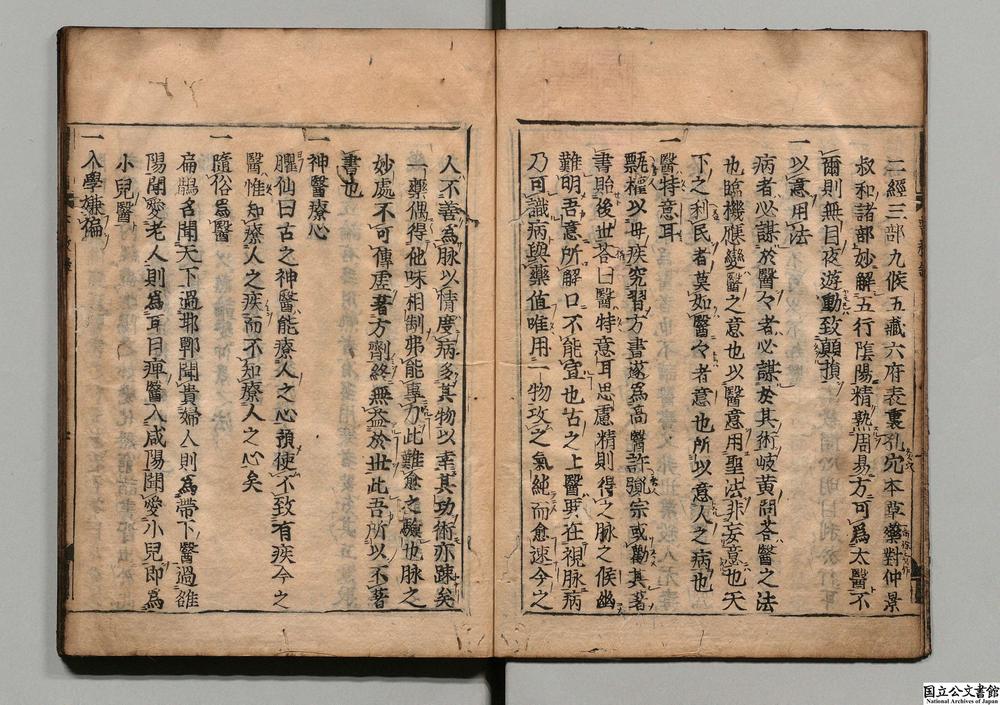 二經三部九候五藏六府表裏孔穴本草藥對仲景
叔和諸部妙解五行陰陽精熟周易方可爲太醫不
爾則無目夜遊動致顛損
一
以意用法
病者必謀於醫々者必謀於其術岐黄問荅醫之法
也臨機應變醫之意也以醫意用聖法非妄意也天
下之利民者莫如醫々者意也所以意人之病也
一
醫特意耳
甄權以母疾究習方書遂爲高醫許胤宗或勸其著
書貽後世荅曰醫特意耳思慮精則得之脉之候幽
難明吾意所解口不能宣也古之上醫要在視脉病
乃可識病與藥值唯用一物攻之氣純而愈速今之
人不善爲脉以情度病多其物以幸其功術亦踈矣
一藥偶得他味相制弗能專力此難愈之驗也脉之
妙處不可傳虚著方劑終無益於世此吾所以不著
書也
一
神醫療心
臞仙曰古之神醫能療人之心預使不致有疾今之
醫惟知療人之疾而不知療人之心矣
一
隨俗爲醫
扁鵲名聞天下過邯鄲聞貴婦人則爲帶下醫過雒
陽聞愛老人則爲耳目痺醫入咸陽聞愛小兒即爲
小兒醫
一
入學嫌偏
国立公文書館
National Archives of Japan